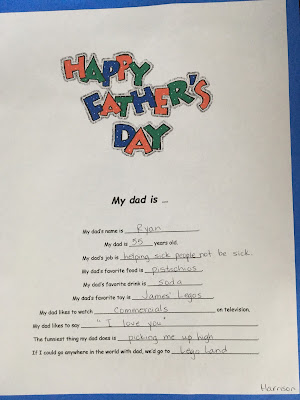 HAPPY
FATHER'S
DAY
My dad is ...
My dad's name is Ryan
My dad is 55 years old.
My dad's job is helping sick people not be sick.
My dad's favorite food is pistachios
My dad's favorite drink is soda
My dad's favorite toy is James' Legos
My dad likes to watch Commercials on television.
My dad likes to say "I love you"
The funniest thing my dad does is picking me up high
If I could go anywhere in the world with dad, we'd go to Lego Land
Harrison